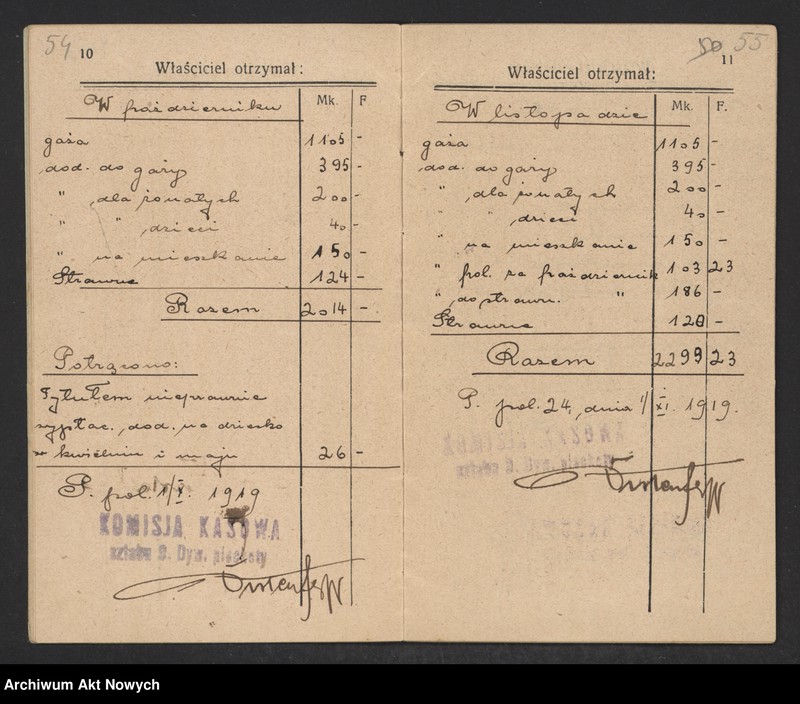 54
10
Właściciel otrzymał:
Mk. F
W październiku
gaża 1105 -
dod. do gaży 395 -
" dla żonatych 200 -
" " dzieci 40 -
" na mieszkanie 150 -
Strawne 124 -
Razem 2014 -
Potrącono:
Tytułem nieprawnie
wypłac. dod. na dziecko
w kwietniu i maju 26 -
P. pol. 1/X. 1919
KOMISJA KASOWA
sztabu 9. Dyw. piechoty
50 55
11
Właściciel otrzymał:
Mk. F.
W listopadzie
gaża 1105 -
dod. do gaży 395 -
" dla żonatych 200 -
" " dzieci 40 -
" na mieszkanie 150 -
" pol. za październik 103 23
" do strawn. " 186 -
Strawne 120 -
Razem 2299 23
P. pol. 24, dnia 1/XI. 1919.
Archiwum Akt Nowych